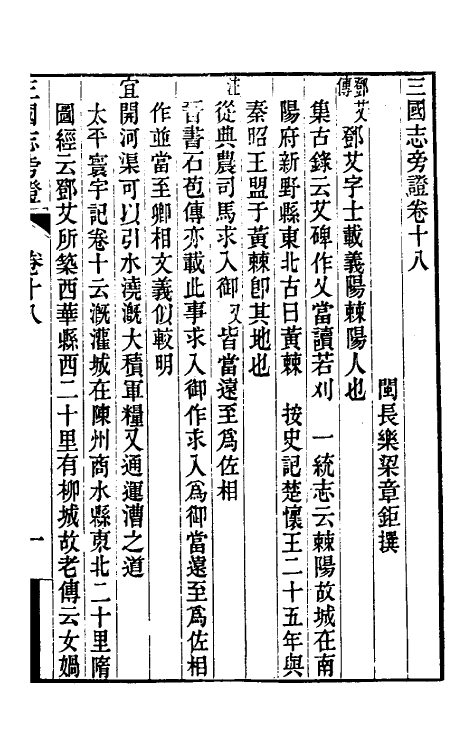 三國志旁證卷十八
閩長樂梁章鉅撰
鄧艾傳
鄧艾字士載義陽棘陽人也
集古錄云艾碑作乂當讀若刈　一統志云棘陽故城在南
陽府新野縣東北古曰黃棘　按史記楚懷王二十五年與
秦昭王盟于黃棘卽其地也
從典農司馬求入御注又皆當遠至爲佐相
晉書石苞傳亦載此事求入御作求人爲御當遠至爲佐相
作並當至卿相文義似較明
宜開河渠可以引水澆漑大積軍糧又通運漕之道
太平寰宇記卷十云漑灌城在陳州商水縣東北二十里隋
圖經云鄧艾所築西華縣西二十里有柳城故老傳云女媧
三國志旁證
卷十八
一